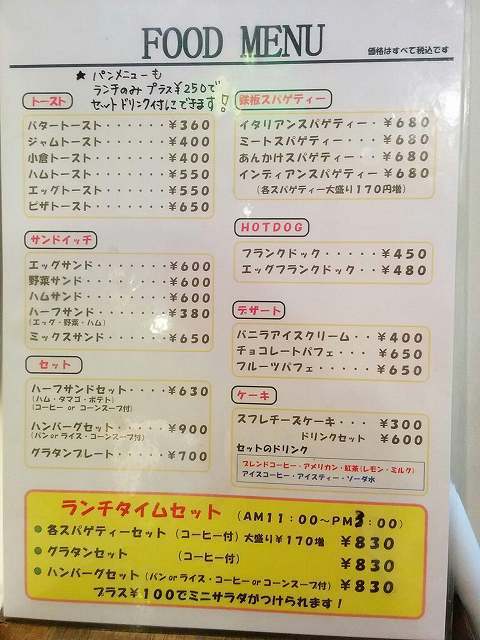 FOOD MENU
価格はすべて税込です
★ パンメニューも
ランチのみ プラス¥250で
セットドリンク付にできます!
トースト
バタートースト・・・・・・・¥360
ジャムトースト・・・・・・・¥400
小倉トースト・・・・・・・・¥400
ハムトースト・・・・・・・・¥550
エッグトースト・・・・・・・¥550
ピザトースト・・・・・・・・¥650
サンドイッチ
エッグサンド・・・・・・・・¥600
野菜サンド・・・・・・・・・¥600
ハムサンド・・・・・・・・・¥600
ハーフサンド・・・・・・・・¥380
(エッグ・野菜・ハム)
ミックスサンド・・・・・・・¥650
セット
ハーフサンドセット・・・・・¥630
(ハム・タマゴ・ポテト)
(コーヒー or コーンスープ付)
ハンバーグセット・・・・・・¥900
(パン or ライス・コーンスープ付)
グラタンプレート・・・・・・¥700
鉄板スパゲティー
イタリアンスパゲティー・・¥680
ミートスパゲティー・・・・¥680
あんかけスパゲティー・・・¥680
インディアンスパゲティー・¥680
(各スパゲティー大盛り170円増)
HOTDOG
フランクドック・・・・・¥450
エッグフランクドック・・¥480
デザート
バニラアイスクリーム・・¥400
チョコレートパフェ・・・¥650
フルーツパフェ・・・・・¥650
ケーキ
スフレチーズケーキ・・・¥300
ドリンクセット ¥600
セットのドリンク
ブレンドコーヒー・アメリカン・紅茶(レモン・ミルク)
アイスコーヒー・アイスティー・ソーダ水
ランチタイムセット (AM11:00~PM3:00)
● 各スパゲティーセット (コーヒー付) 大盛り¥170増 ¥830
● グラタンセット (コーヒー付) ¥830
● ハンバーグセット (パン or ライス・コーヒー or コーンスープ付) ¥830
プラス¥100でミニサラダがつけられます!